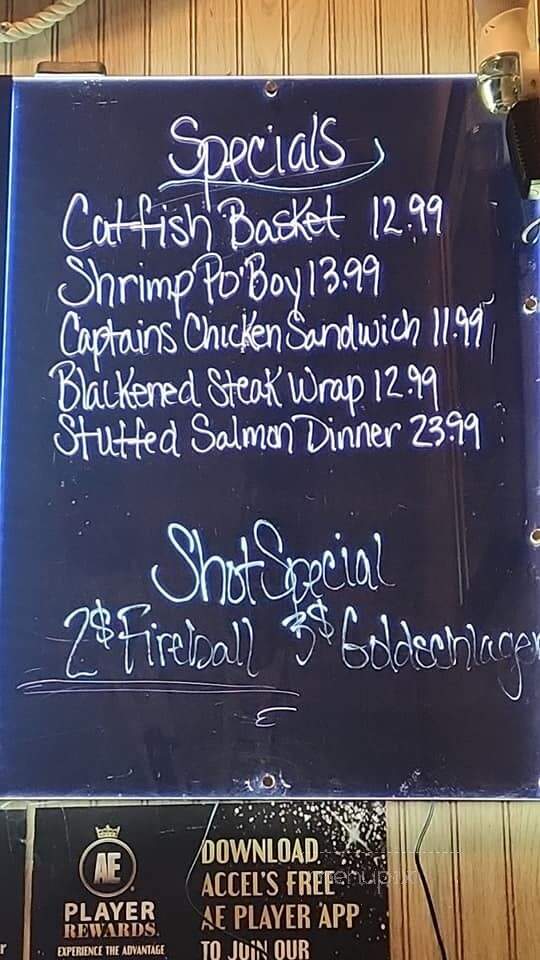 Specials
Catfish Basket 12.99
Shrimp Po'Boy 13.99
Captains Chicken Sandwich 11.99
Blackened Steak Wrap 12.99
Stuffed Salmon Dinner 23.99
Shot Special
2$ Fireball 3$ Goldschlager
AE
PLAYER
REWARDS.
EXPERIENCE THE ADVANTAGE
DOWNLOAD
ACCEL'S FREE
AE PLAYER APP
TO JOIN OUR
menupix
r